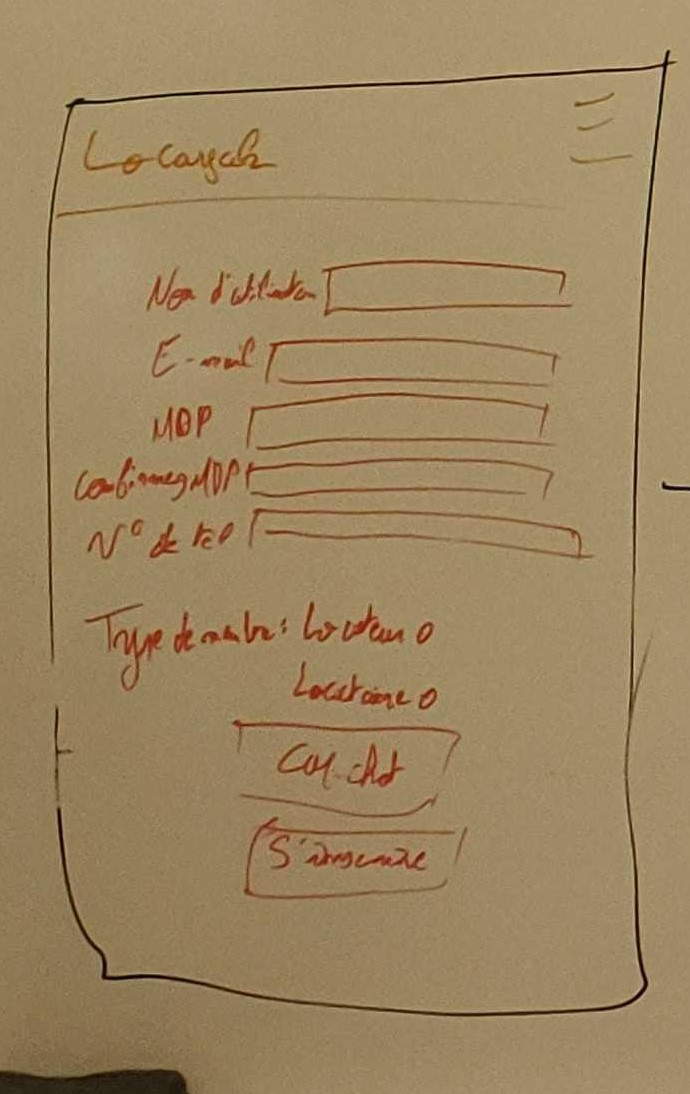 Locayach
Nom d'utilisateur
E-mail
MDP
Confirmez MDP
N° de tel
Type de membre: Locateur O
Locataire O
S'inscrire